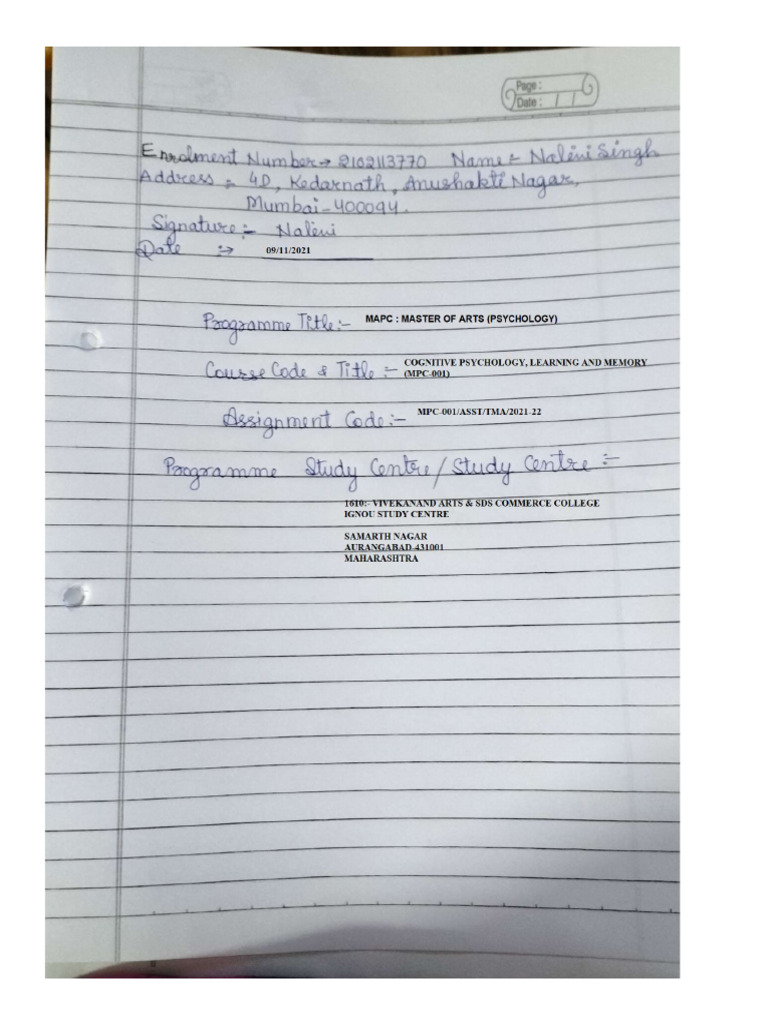 Page :
Date :
Enrolment Number → 2102113770 Name :- Nalini Singh
Address :- 4D, Kedarnath, Anushakti Nagar,
Mumbai-400094.
Signature:- Nalini
Date :→ 09/11/2021
Programme Title:- MAPC : MASTER OF ARTS (PSYCHOLOGY)
Course Code & Title :- COGNITIVE PSYCHOLOGY, LEARNING AND MEMORY
(MPC-001)
Assignment Code:- MPC-001/ASST/TMA/2021-22
Programme Study Centre/Study Centre :-
1610:- VIVEKANAND ARTS & SDS COMMERCE COLLEGE
IGNOU STUDY CENTRE
SAMARTH NAGAR
AURANGABAD-431001
MAHARASHTRA